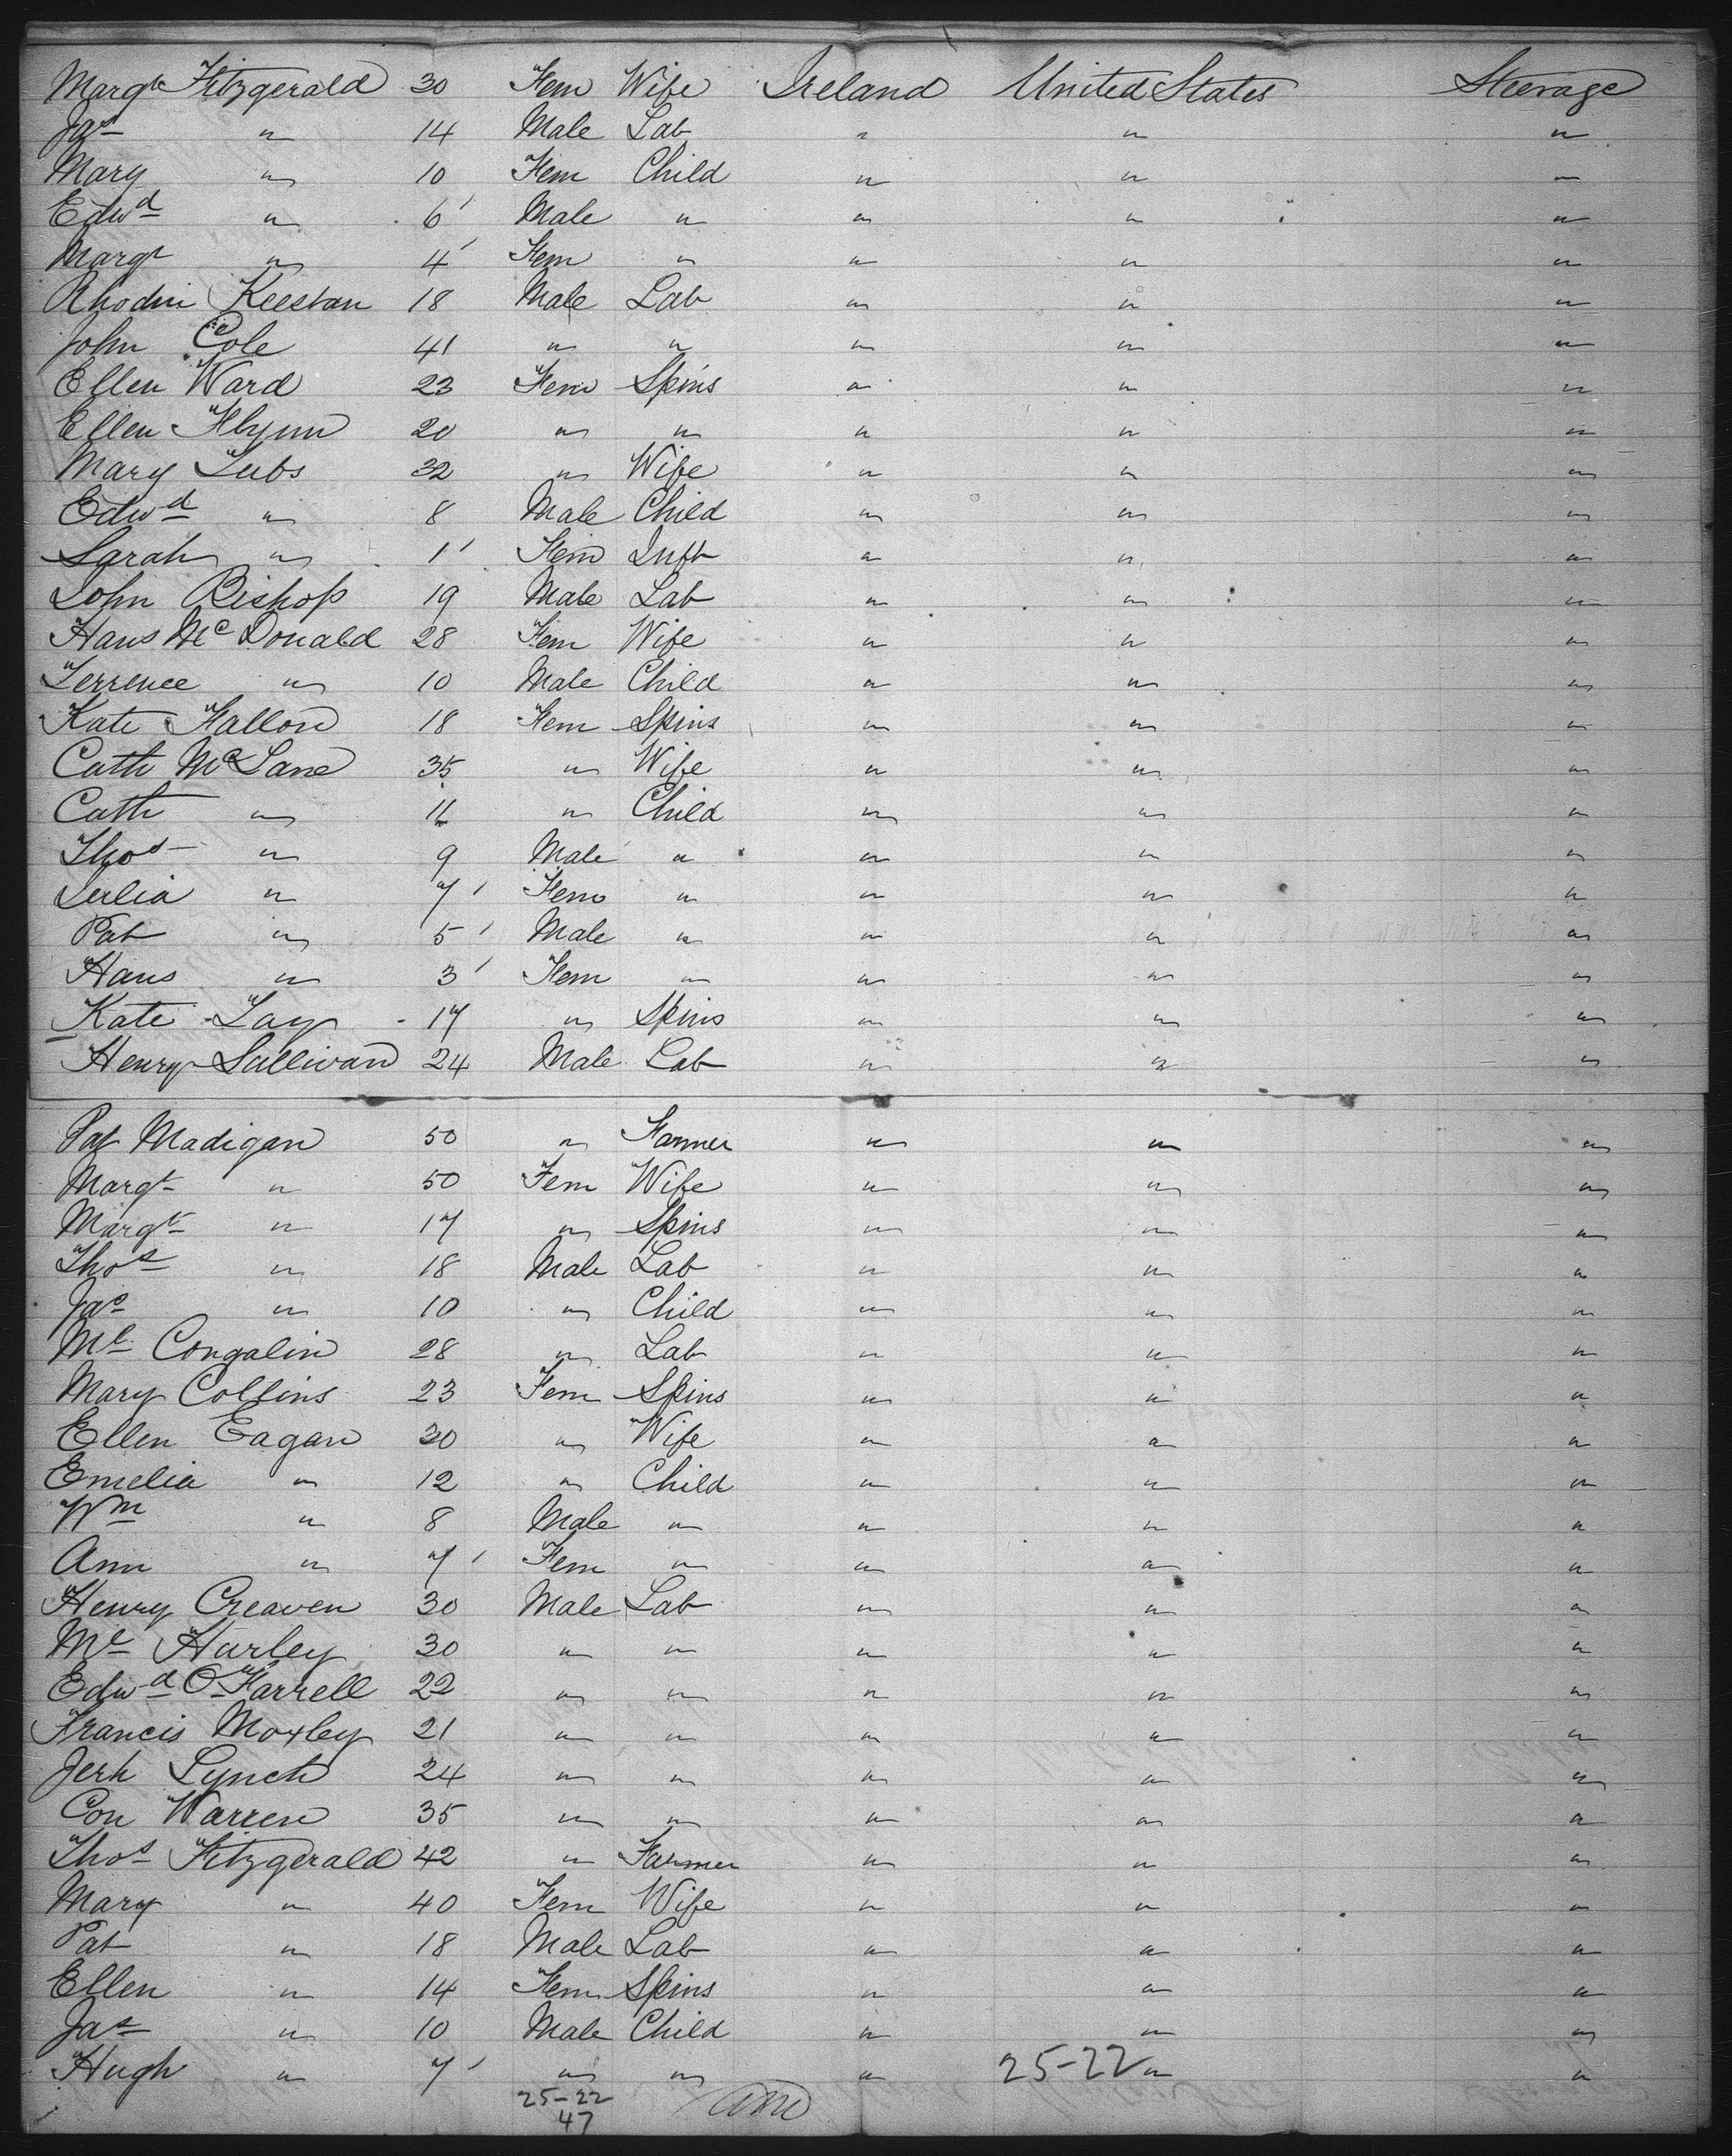 Margt Fitzgerald 30 Fem Wife Ireland United States Steerage
Jas " 14 Male Lab " " "
Mary " 10 Fem Child " " "
Edwd " 6 Male " " " "
Margt " 4 Fem " " " "
Keestan 18 Male Lab " " "
John Cole 41 " " " " "
Ellen Ward 23 Fem Spins " " "
Ellen Flynn 20 " " " " "
Mary Tubs 32 " Wife " " "
Edwd " 8 Male Child " " "
Sarah " 1 Fem Inft " " "
John Bishop 19 Male Lab " " "
Hans McDonald 28 Fem Wife " " "
Terrence " 10 Male Child " " "
Kate Fallon 18 Fem Spins " " "
Cath McLane 35 " Wife " " "
Cath " 11 " Child " " "
Thos " 9 Male " " " "
" 7 Fem " " " "
Pat " 5 Male " " " "
Hans " 3 Fem " " " "
Kate Lay 17 " Spins " " "
Henry Sullivan 24 Male Lab " " "
Pat Madigan 50 " Farmer " " "
Margt " 50 Fem Wife " " "
Margt " 17 " Spins " " "
Thos " 18 Male Lab " " "
Jas " 10 " Child " " "
Ml Congalin 28 " Lab " " "
Mary Collins 23 Fem Spins " " "
Ellen Eagan 30 " Wife " " "
Emelia " 12 " Child " " "
Wm " 8 Male " " " "
Ann " 7 Fem " " " "
Henry Creaven 30 Male Lab " " "
Ml Hurley 30 " " " " "
Edwd O'Farrell 22 " " " " "
Francis Moxley 21 " " " " "
Jerh Lynch 24 " " " " "
Con Warren 35 " " " " "
Thos Fitzgerald 42 " Farmer " " "
Mary " 40 Fem Wife " " "
Pat " 18 Male Lab " " "
Ellen " 14 Fem Spins " " "
Jas " 10 Male Child " " "
Hugh " 7 " " " 25-22 " "
25-22
47